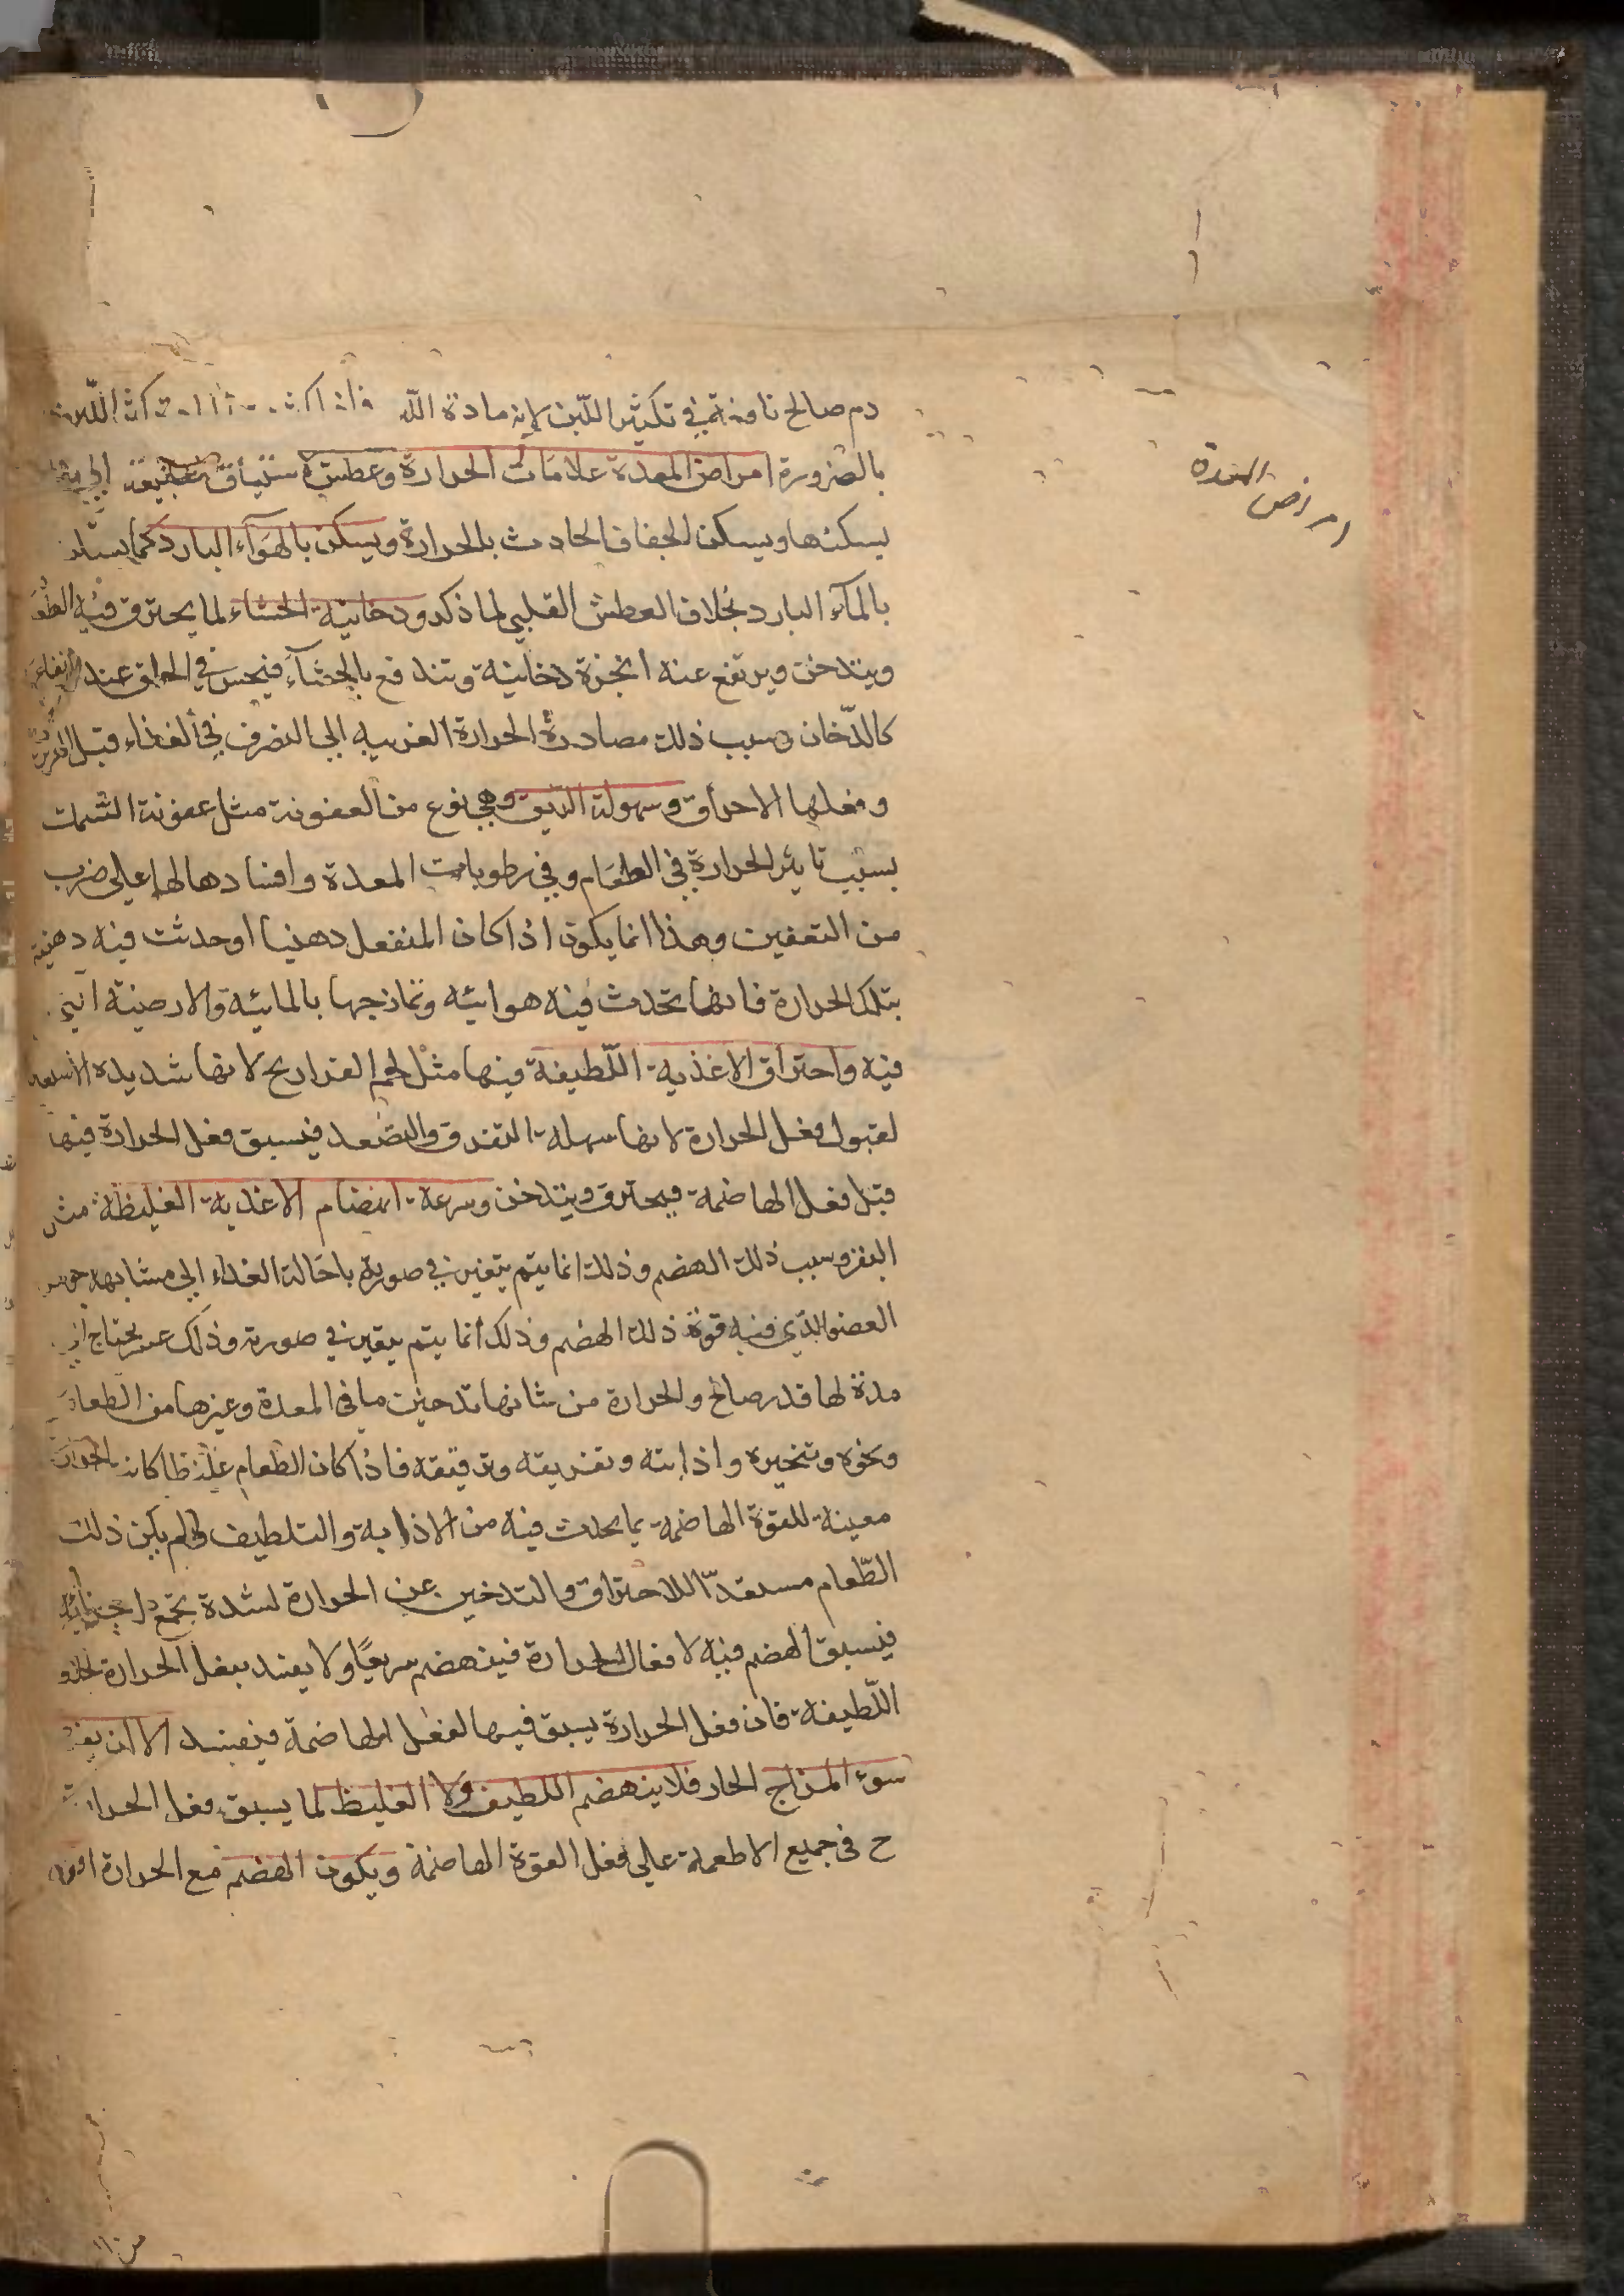 امراض المعدة
دم صالح نافع في تكثير اللّبن لانه مادة اللبن فاذا كثرت المادة كثر اللّبن
بالضرورة امراض المعدة علامات الحرارة وعطش
يسكنها ويسكن الجفاف الحادث بالحرارة ويسكن بالهوآء البارد كما يسكن
بالمآء البارد بخلاف العطش القلبي لما ذكر ودخانية الجشاء لما يحترق فيه الطعا
ويتدخن ويرتفع عنه ابخرة دخانية وتندفع بالجشآء فيحس في الحلق عند
كالدّخان وسبب ذلك مصادرة الحرارة الغريبه الي التصرف في الغذاء قبل
وفعلها الاحراق وسهولة الريق وهي نوع من العفونة مثل عفونة الشمك
بسبب تاثير الحرارة في الطعام وفي رطوبات المعدة وافسادها لها علي ضرب
من التعفين وهذا انما يكون اذا كان المنفعل دهنيا او حدثت فيه دهنية
بتلك الحرارة فانها تحدث فيه هوائية وتمازجها بالمائية والارضية
فيه واحتراق الاغذية اللّطيفة فيها مثل لحم الفراريح لانها شديدة
لقبول فعل الحرارة لانها سهلة التفرق والتصعد فيسبق فعل الحرارة فيها
قبل فعل الهاضمة فيحترق ويتدخن وسرعة انهضام الاغذية الغليظة مثل
البقر وسبب ذلك الهضم وذلك انما يتم بتغير في صورة باحالة الغذاء الي مشابهة
العضو الذي فيه قوة ذلك الهضم وذلك انما يتم بتغير في صورة وذلك عسر يحتاج
مدة لها قدر صالح والحرارة من شانها تدخين ما في المعدة وغيرها من الطعام
ونحوه وتبخيره واذابته وتفريقه وترقيقه فاذا كان الطعام غليظا كانت الحرارة
معينة للقوة الهاضمة بما يحدث فيه من الاذابة والتلطيف ولم يكن ذلك
الطّعام مستعدّا للاحتراق والتدخين عن الحرارة لشدة تجمع اجزائه
فيسبق الهضم فيه لافعال الحرارة فينهضم سريعًا ولا يفسد بفعل الحرارة بخلاف
اللّطيفة فان فعل الحرارة يسبق فيها لفعل الهاضمة فيفسد الا ان
سوء المزاج الحار فلا ينهضم اللطيف ولا الغليظ لما يسبق فعل الحرارة
ح في جميع الاطعمة علي فعل القوة الهاضمة ويكون الهضم مع الحرارة